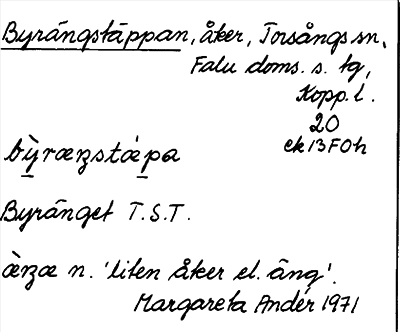 Byrängstäppan, åker, Torsångs sn,
Falu doms. s. tg,
Kopp. l.
20
ek 13 F0h
bỳ̱ræŋstǽp̱a
Byränget T.S.T.
æ̀ŋæ n. 'liten åker el. äng'.
Margareta Andér 1971